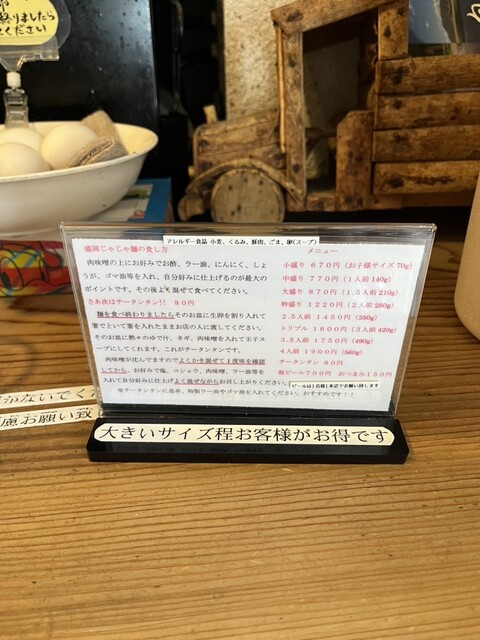 終りましたら
ください
アレルギー食品 小麦、くるみ、豚肉、ごま、卵(スープ)
盛岡じゃじゃ麺の食し方
肉味噌の上にお好みでお酢、ラー油、にんにく、しょ
うが、ゴマ油等を入れ、自分好みに仕上げるのが最大の
ポイントです。その後よく混ぜて食べてください。
さあ次はチータンタン!! 80円
麺を食べ終わりましたらそのお皿に生卵を割り入れて
箸でといて箸を入れたままお店の人に渡してください。
そのお皿に熱々のゆで汁、ネギ、肉味噌を入れて玉子ス
ープにしてくれます。これがチータンタンです。
肉味噌が沈んでますのでよくかき混ぜて1度味を確認
してから、お好みで塩、コショウ、肉味噌、ラー油等を
入れて自分好みに仕上げよく混ぜながらお召し上がりください。
※チータンタンに是非、特製ラー油やゴマ油を入れてください。おすすめです!!
メニュー
小盛り 670円(お子様サイズ70g)
中盛り 770円(1人前140g)
大盛り 870円(1,5人前210g)
特盛り 1220円(2人前280g)
2.5人前 1450円(350g)
トリプル 1600円(3人前420g)
3.5人前 1750円(490g)
4人前 1900円(560g)
チータンタン 80円
瓶ビール700円 おつまみ150円
ビールは1名様1本迄でお願い致します
大きいサイズ程お客様がお得です
かないでく
慮お願い致